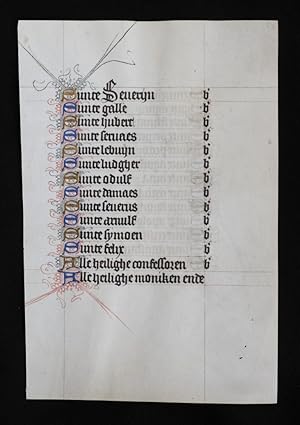 Sinte Seueryn b'
Sinte galle b'
Sinte hubert b'
Sinte seruaes b'
Sinte lebuyn b'
Sinte ludgher b'
Sinte odulf b'
Sinte damaes b'
Sinte seuerus b'
Sinte arnulf b'
Sinte symoen b'
Sinte felix b'
Alle heilighe confessoren b'
Alle heilighe moniken ende